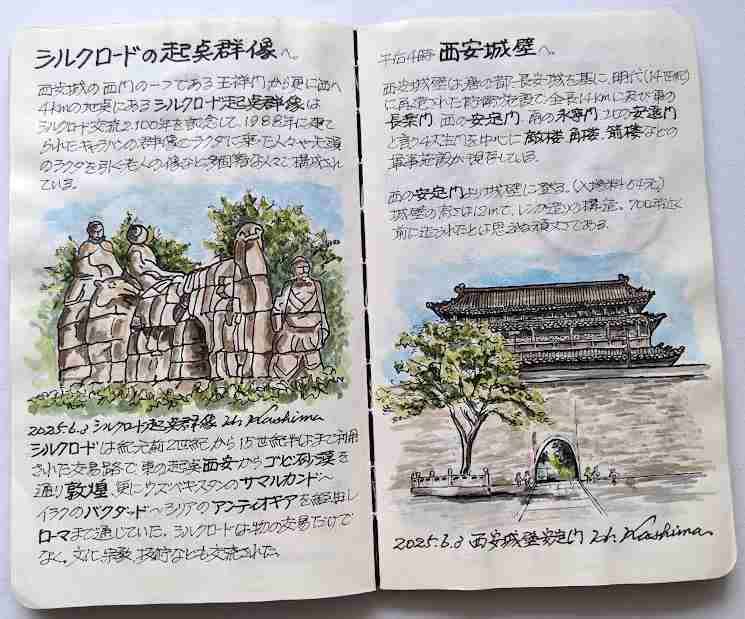 シルクロードの起点群像へ。
西安城の西門の一つである玉祥門から更に西へ
4kmの地点にあるシルクロード起点群像は
シルクロード交流2,100年を記念して、1988年に建て
られたキャラバンの群像でラクダに乗った人々や先頭
のラクダを引く老人の像など多国籍な人々で構成され
ている。
2025.6.3 シルクロード起点群像 H. Kashima
シルクロードは紀元前2世紀から15世紀半ばまで利用
された交易路で、東の起点西安からゴビ砂漠を
通り敦煌、更にウズベキスタンのサマルカンド〜
イラクのバクダッド〜シリアのアンティオキアを経由し
ローマまで通じていた。シルクロードは物の交易だけで
なく、文化、宗教、技術なども交流された。
午后4時 西安城壁へ。
西安城壁は唐の都・長安城を基に、明代(14世紀)
に再建された防衛施設で、全長14kmに及び東の
長楽門、西の安定門、南の永寧門、北の安遠門
と言う4大主門を中心に敵楼、角楼、箭楼などの
軍事施設が現存している。
西の安定門より城壁に登る。(入場料54元)
城壁の高さは12mで、レンガ造りの構造。700年近く
前に造られたとは思えぬ頑丈さである。
2025.6.3 西安城壁安定門 H. Kashima